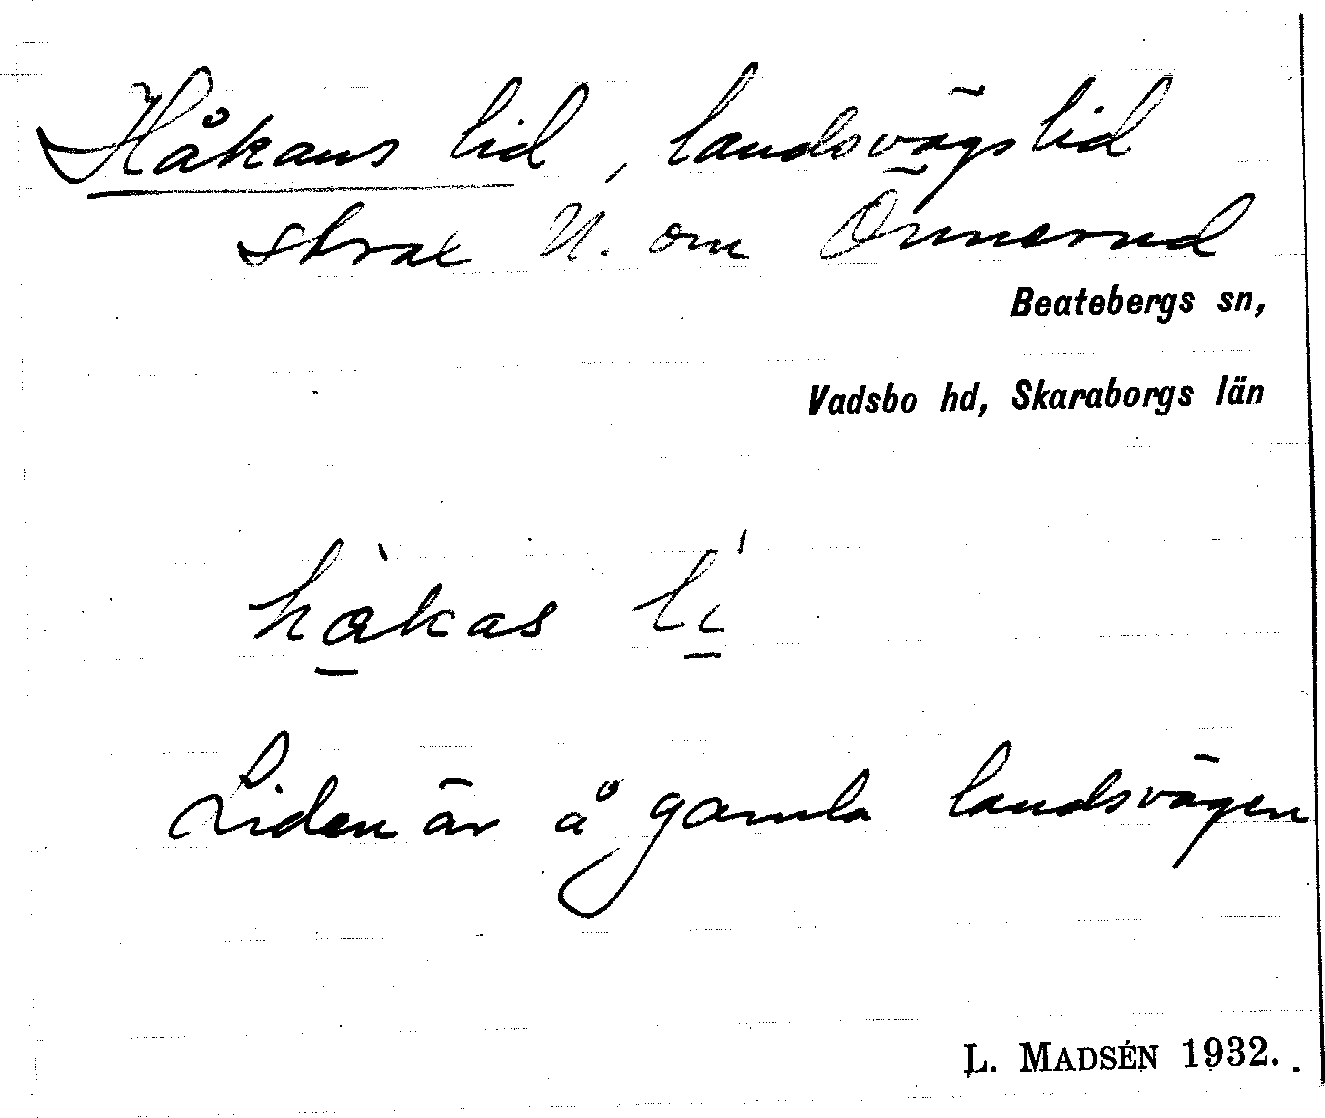 Håkans lid, landsvägslid
strax N. om Önnerud
Beatebergs sn,
Vadsbo hd, Skaraborgs län
hàkas lí
Liden är å gamla landsvägen
L. MADSÉN 1932.